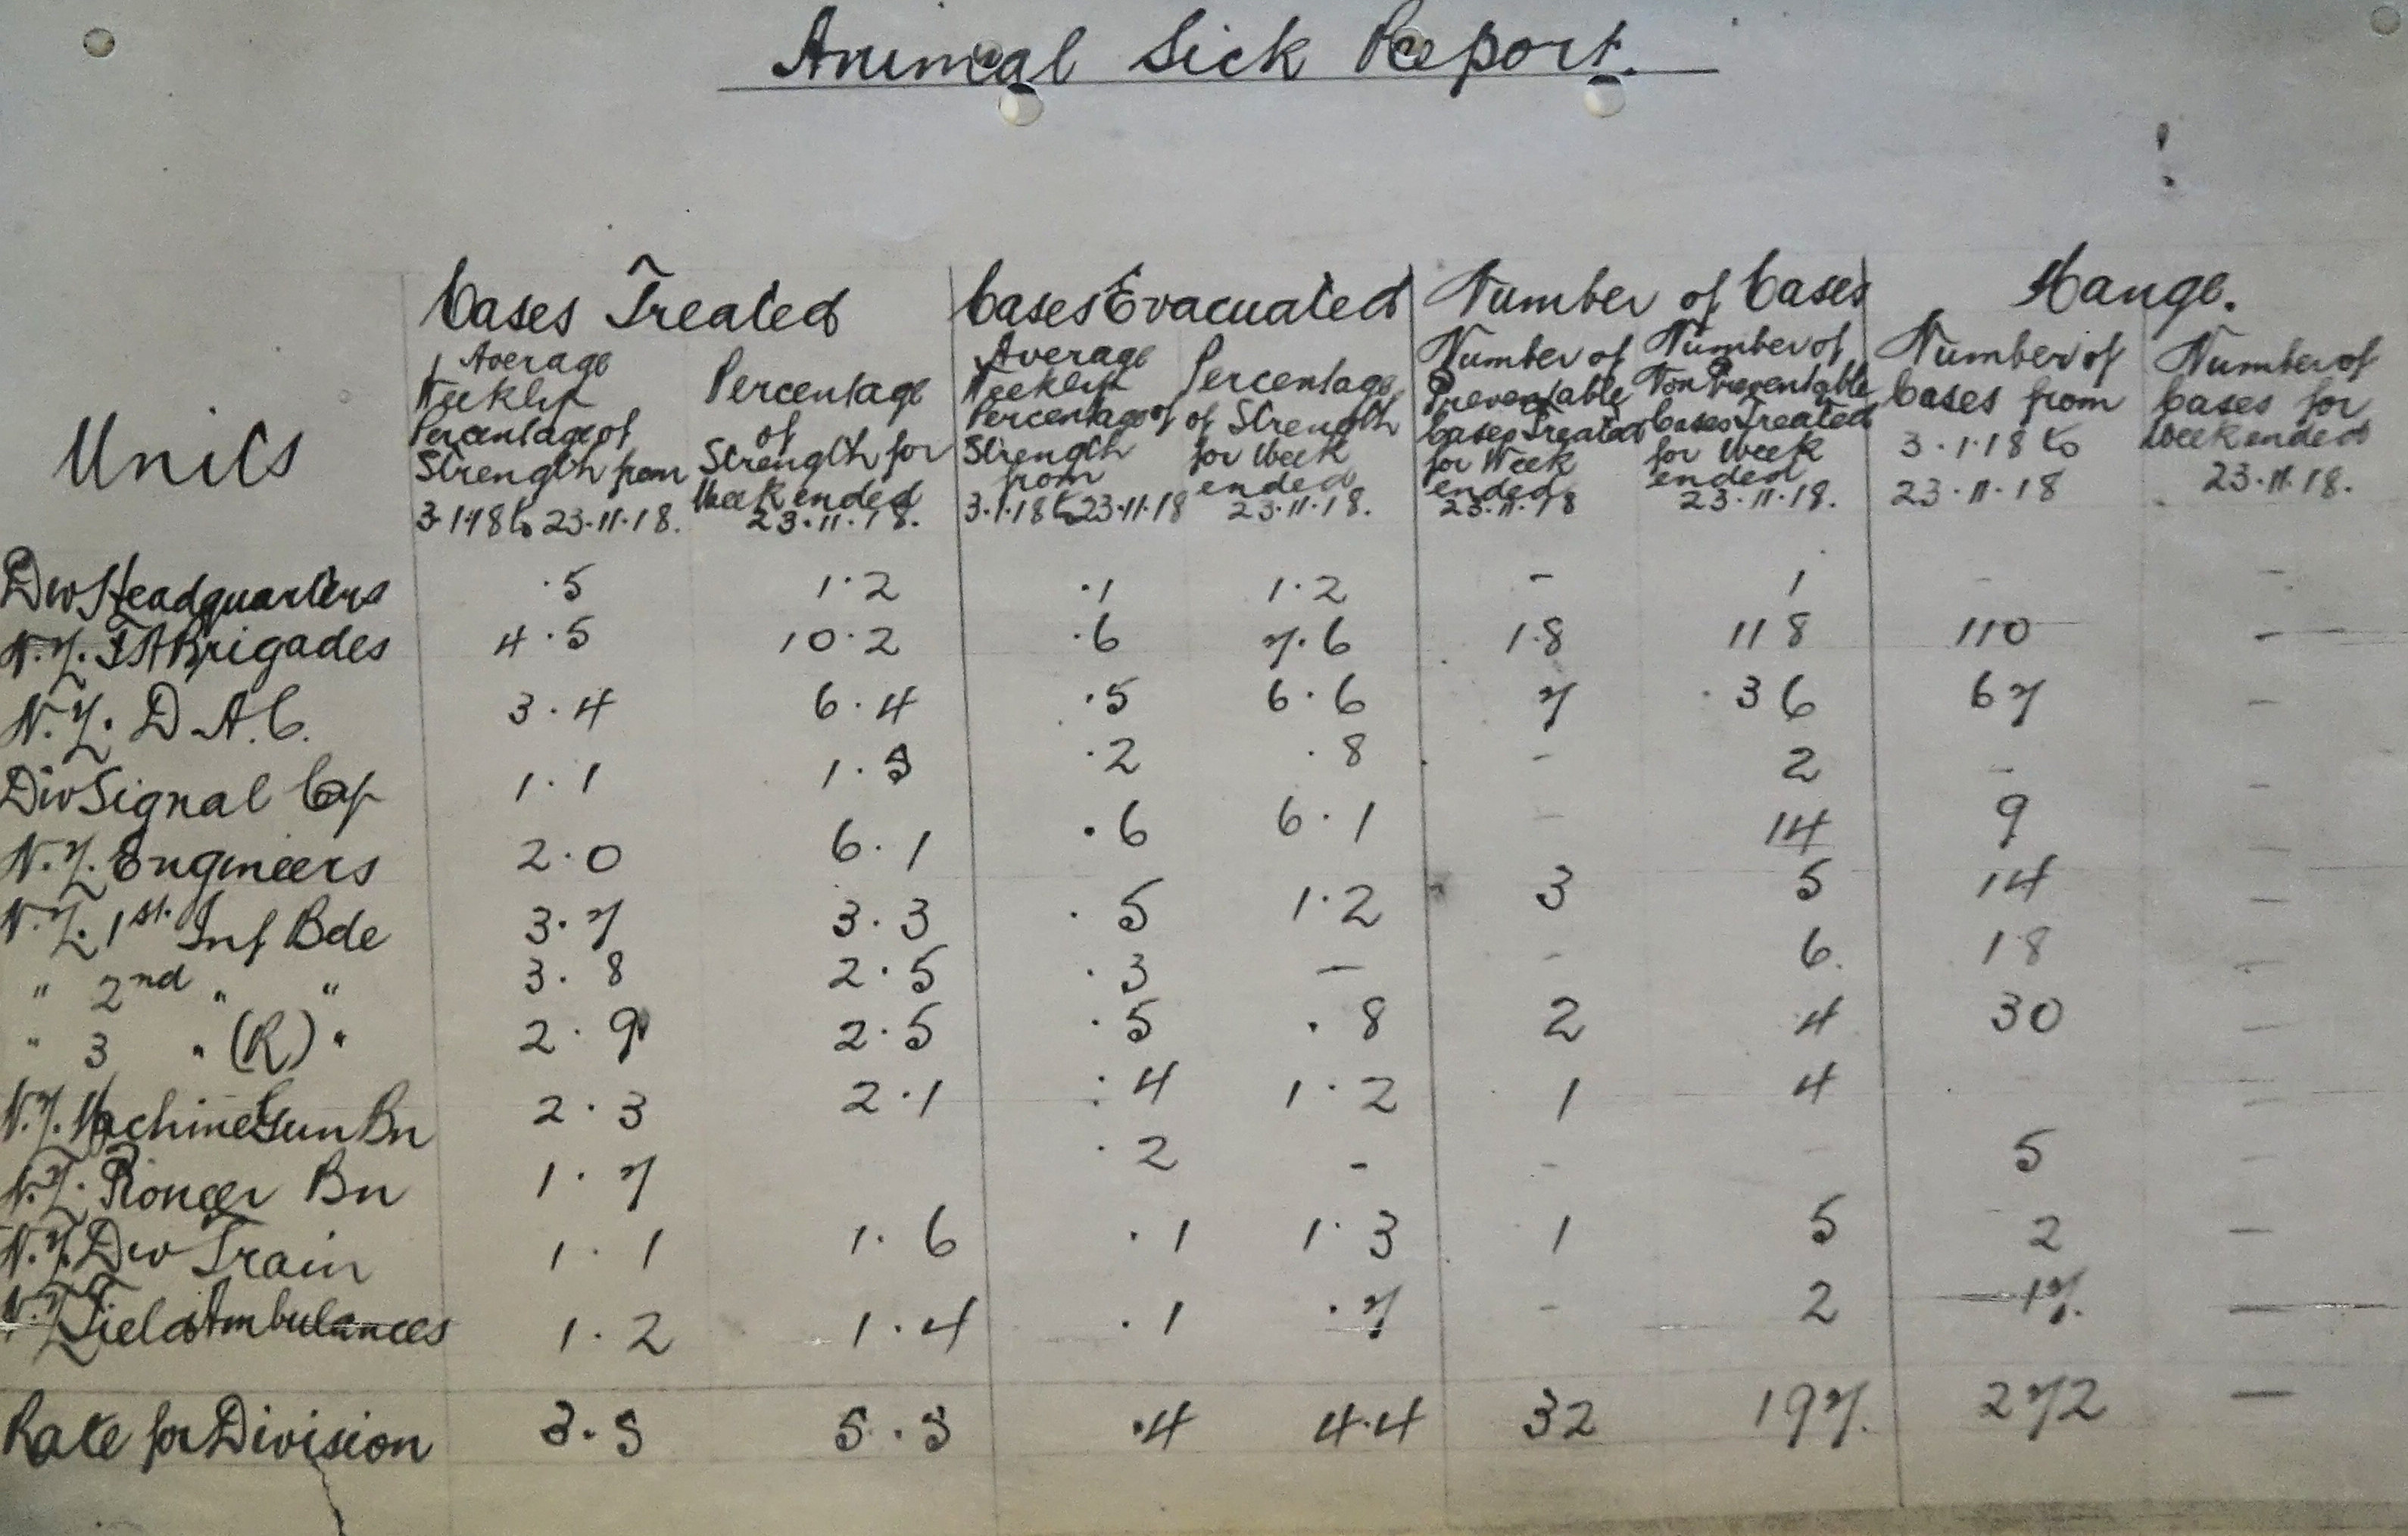 Animal Sick Report.
Cases Treated Cases Evacuated Number of Cases Mange.
Units
Average Weekly Percentage of Strength from 3.1.18 to 23.11.18.
Percentage of Strength for Week ended 23.11.18.
Average Weekly Percentage of Strength from 3.1.18 to 23.11.18
Percentage of Strength for Week ended 23.11.18.
Number of Preventable Cases Treated for Week ended 23.11.18
Number of Non Preventable Cases Treated for Week ended 23.11.18.
Number of Cases from 3.1.18 to 23.11.18
Number of Cases for Week ended 23.11.18.
Div Headquarters .5 1.2 .1 1.2 - 1 - -
N.Z. F A Brigades 4.5 10.2 .6 7.6 18 118 110 -
N.Z. D A.C. 3.4 6.4 .5 6.6 7 36 67 -
Div Signal Coy 1.1 1.5 .2 .8 - 2 - -
N.Z. Engineers 2.0 6.1 .6 6.1 - 14 9 -
N.Z. 1st. Inf Bde 3.7 3.3 .5 1.2 3 5 14 -
" 2nd " " 3.8 2.5 .3 - - 6. 18 -
" 3 " (R) " 2.9 2.5 .5 .8 2 4 30 -
N.Z. Machine Gun Bn 2.3 2.1 .4 1.2 1 4 -
N.Z. Pioneer Bn 1.7 .2 - - - 5 -
N.Z. Div Train 1.1 1.6 .1 1.3 1 5 2 -
N.Z Field Ambulances 1.2 1.4 .1 .7 - 2 17. -
Rate for Division 3.5 5.5 .4 4.4 32 197. 272 -